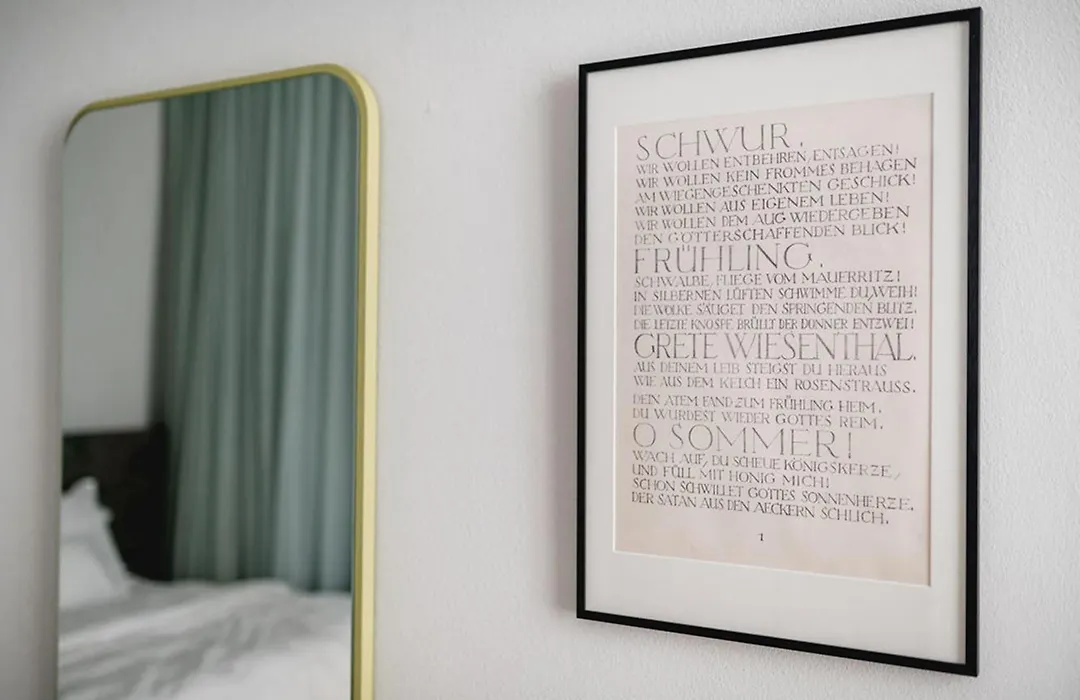 SCHWUR.
WIR WOLLEN ENTBEHREN, ENTSAGEN!
WIR WOLLEN KEIN FROMMES BEHAGEN
AM WIEGENGESCHENKTEN GESCHICK!
WIR WOLLEN AUS EIGENEM LEBEN!
WIR WOLLEN DEM AUG WIEDERGEBEN
DEN GÖTTERSCHAFFENDEN BLICK!
FRÜHLING.
SCHWALBE, FLIEGE VOM MAUERRITZ!
IN SILBERNEN LÜFTEN SCHWIMME DU, WEIH!
DIE WOLKE SÄUGET DEN SPRINGENDEN BLITZ.
DIE LETZTE KNOSPE BRÜLLT DER DONNER ENTZWEI!
GRETE WIESENTHAL.
AUS DEINEM LEIB STEIGST DU HERAUS
WIE AUS DEM KELCH EIN ROSENSTRAUSS.
DEIN ATEM FAND ZUM FRÜHLING HEIM,
DU WURDEST WIEDER GOTTES REIM.
O SOMMER!
WACH AUF, DU SCHEUE KÖNIGSKERZE,
UND FÜLL MIT HONIG MICH!
SCHON SCHWILLET GOTTES SONNENHERZE.
DER SATAN AUS DEN AECKERN SCHLICH.
1